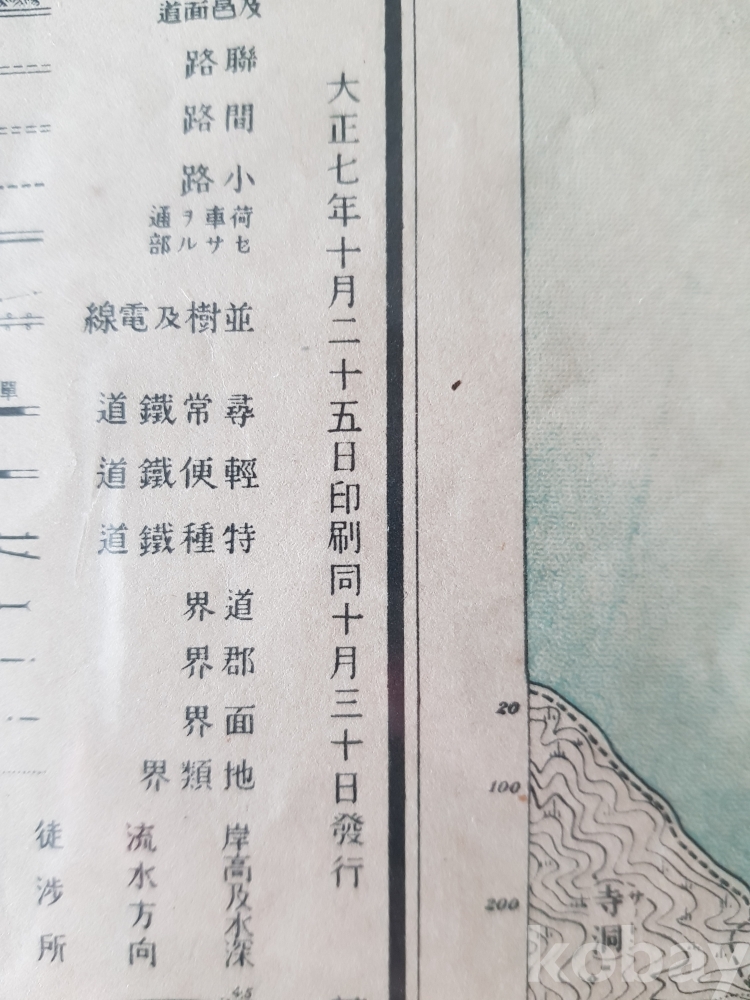 大正七年十月二十五日印刷同十月三十日發行
及邑面道
聯路
間路
小路
荷車ヲ通
セサル部
並樹及電線
單
尋常鐵道
輕便鐵道
特種鐵道
道界
郡界
面界
地類界
岸高及水深
流水方向
徒涉所
4.5
20
100
200
寺洞
サ
kobay